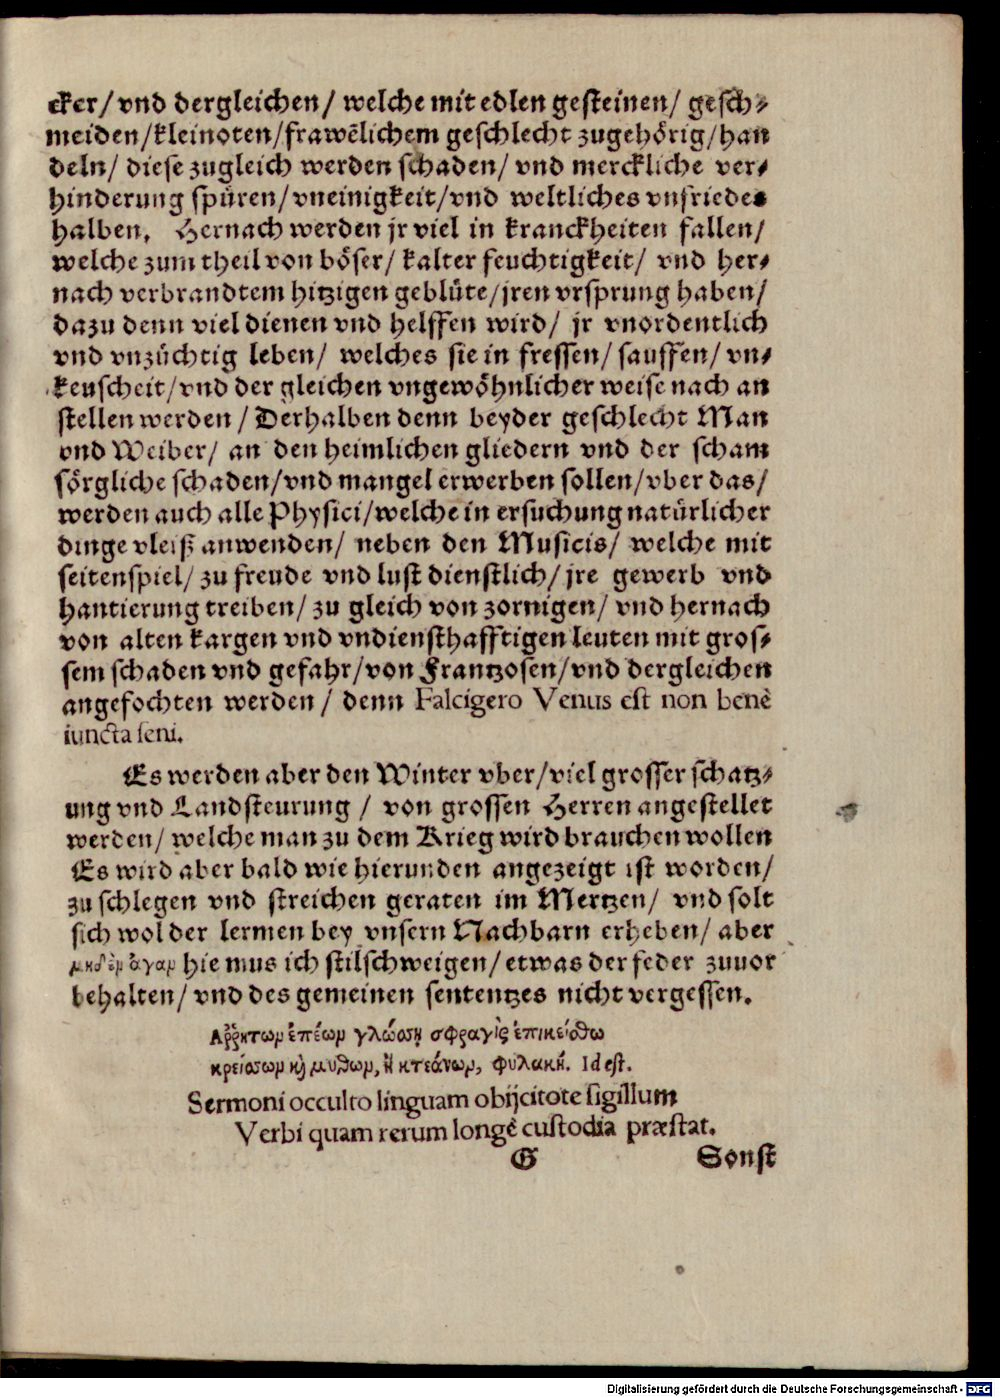 cker/ vnd dergleichen/ welche mit edlen gesteinen/ gesch⸗
meiden/kleinoten/frawēlichem geschlecht zugehörig/han
deln/ diese zugleich werden schaden/ vnd merckliche ver⸗
hinderung spüren/vneinigkeit/vnd weltliches vnfriedes
halben. Hernach werden jr viel in kranckheiten fallen/
welche zum theil von böser/ kalter feuchtigkeit/ vnd her⸗
nach verbrandtem hitzigen geblüte/jren vrsprung haben/
dazu denn viel dienen vnd helffen wird/ jr vnordentlich
vnd vnzüchtig leben/ welches sie in fressen/ sauffen/ vn⸗
keuscheit/vnd der gleichen vngewöhnlicher weise nach an
stellen werden / Derhalben denn beyder geschlecht Man
vnd Weiber/ an den heimlichen gliedern vnd der scham
sörgliche schaden/vnd mangel erwerben sollen/vber das/
werden auch alle Physici/welche in ersuchung natürlicher
dinge vleiß anwenden/ neben den Musicis/ welche mit
seitenspiel/ zu freude vnd lust dienstlich/ jre gewerb vnd
hantierung treiben/ zu gleich von zornigen/ vnd hernach
von alten kargen vnd vndiensthafftigen leuten mit gros⸗
sem schaden vnd gefahr/von Frantzosen/vnd dergleichen
angefochten werden / denn Falcigero Venus est non benè
iuncta seni.
Es werden aber den Winter vber/viel grosser schatz⸗
ung vnd Landsteurung / von grossen Herren angestellet
werden/ welche man zu dem Krieg wird brauchen wollen
Es wird aber bald wie hierunden angezeigt ist worden/
zu schlegen vnd streichen geraten im Mertzen/ vnd solt
sich wol der lermen bey vnsern Nachbarn erheben/ aber
μηδὲν ἄγαν hie mus ich stilschweigen/ etwas der feder zuuor
behalten/ vnd des gemeinen sententzes nicht vergessen.
Ἀῤῥήτων ἐπέων γλώσσῃ σφραγὶς ἐπικείσθω
κρείσσων καὶ μύθων, ἢ κτεάνων, φυλακή. Id est.
Sermoni occulto linguam obijcitote sigillum
Verbi quam rerum longè custodia præstat.
G Sonst
Digitalisierung gefördert durch die Deutsche Forschungsgemeinschaft - DFG